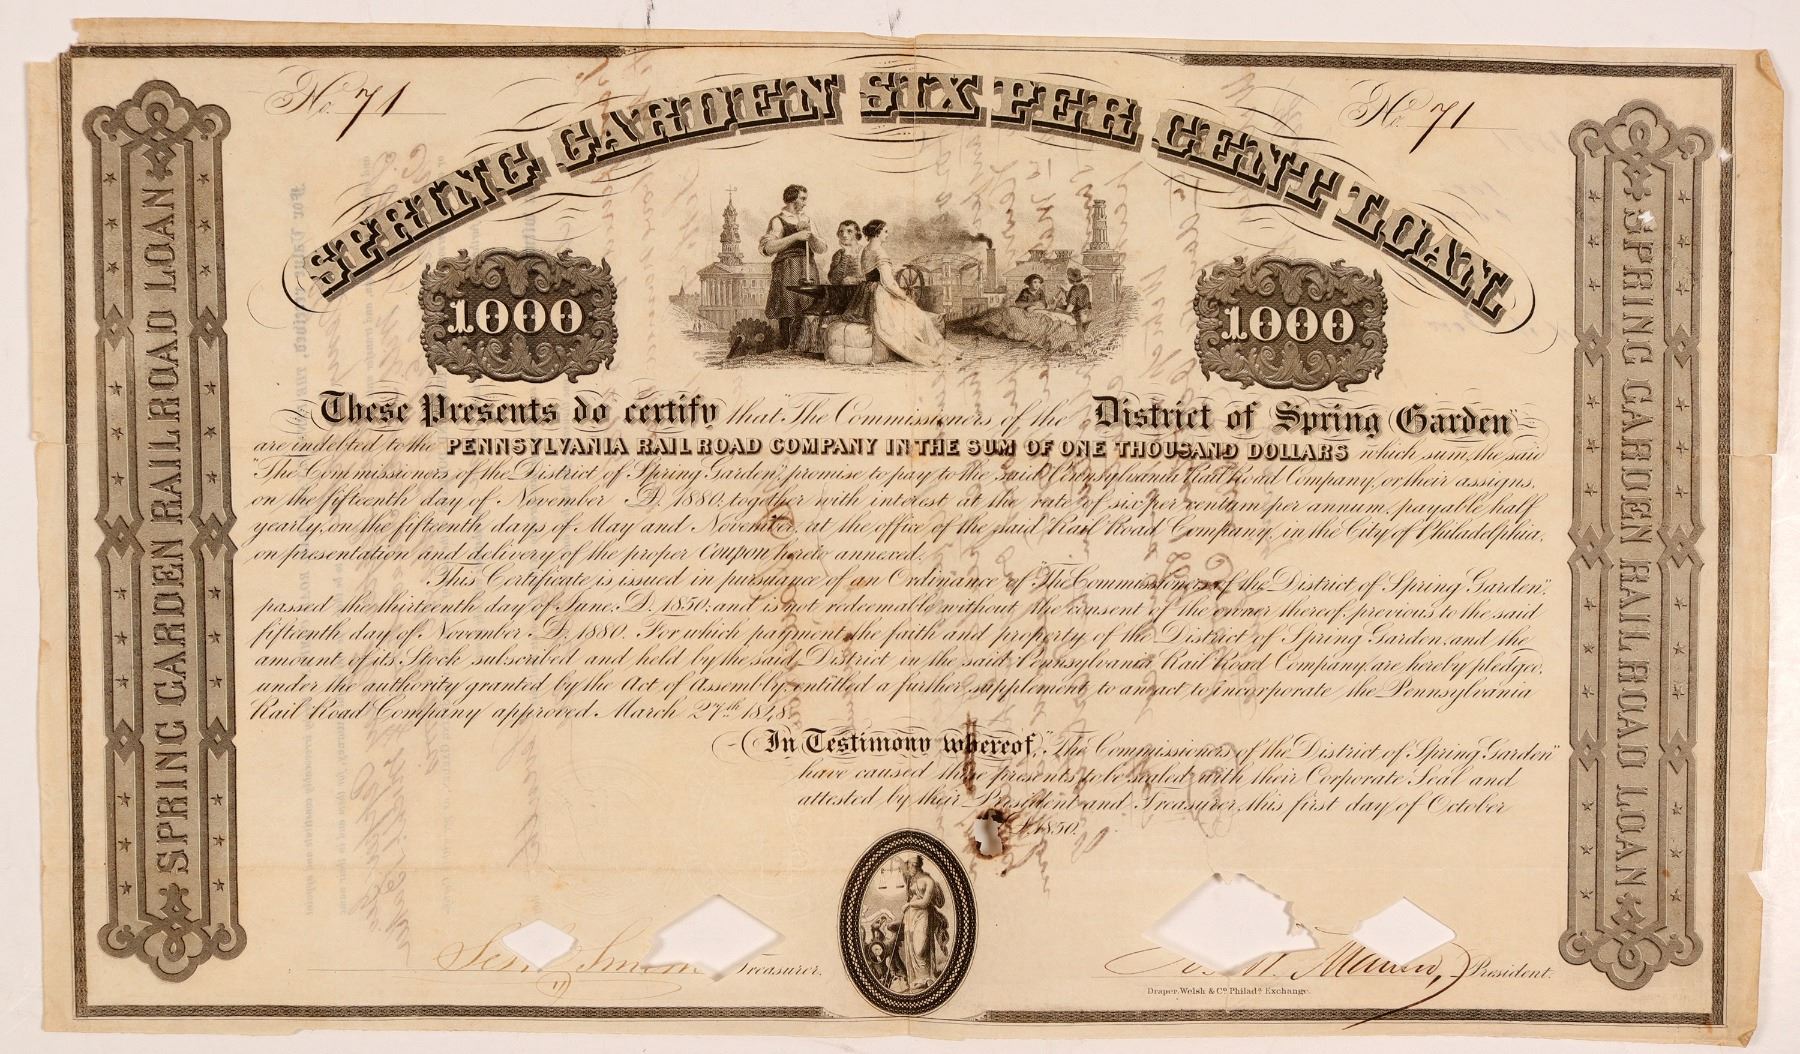 No. 71
No. 71
SPRING GARDEN SIX PER CENT LOAN
1000
1000
SPRING GARDEN RAILROAD LOAN
SPRING GARDEN RAILROAD LOAN
These Presents do certify that "The Commissioners of the District of Spring Garden"
are indebted to the PENNSYLVANIA RAIL ROAD COMPANY IN THE SUM OF ONE THOUSAND DOLLARS which sum, the said
"The Commissioners of the District of Spring Garden", promise to pay to the said Pennsylvania Rail Road Company, or their assigns,
on the fifteenth day of November A.D. 1880, together with interest at the rate of six per centum per annum, payable half
yearly, on the fifteenth days of May and November, at the office of the said Rail Road Company, in the City of Philadelphia,
on presentation and delivery of the proper Coupon hereto annexed.
This Certificate is issued in pursuance of an Ordinance of "The Commissioners of the District of Spring Garden",
passed the thirteenth day of June A.D. 1850; and is not redeemable without the consent of the owner thereof, previous to the said
fifteenth day of November A.D. 1880. For which payment the faith and property of the District of Spring Garden, and the
amount of its Stock subscribed and held by the said District in the said Pennsylvania Rail Road Company, are hereby pledged,
under the authority granted by the Act of Assembly, entitled a further supplement to an act to incorporate the Pennsylvania
Rail Road Company approved March 27th 1848.
In Testimony whereof, "The Commissioners of the District of Spring Garden"
have caused these presents to be sealed with their Corporate Seal and
attested by their President and Treasurer, this first day of October
A.D. 1850.
Treasurer.
President.
Draper, Welsh & Co. Philada. Exchange.